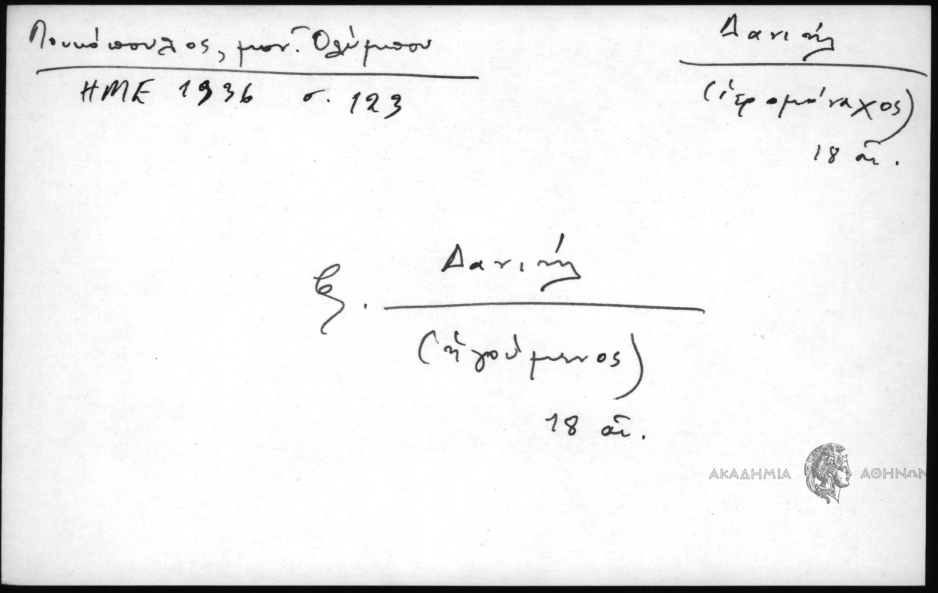 Λουκόπουλος, μον. Ὀλύμπου
ΗΜΕ 1936 σ. 123
Δανιήλ
(ἱερομόναχος)
18 αἰ.
Δανιήλ
(ἡγούμενος)
18 αἰ.
ΑΚΑΔΗΜΙΑ ΑΘΗΝΩΝ